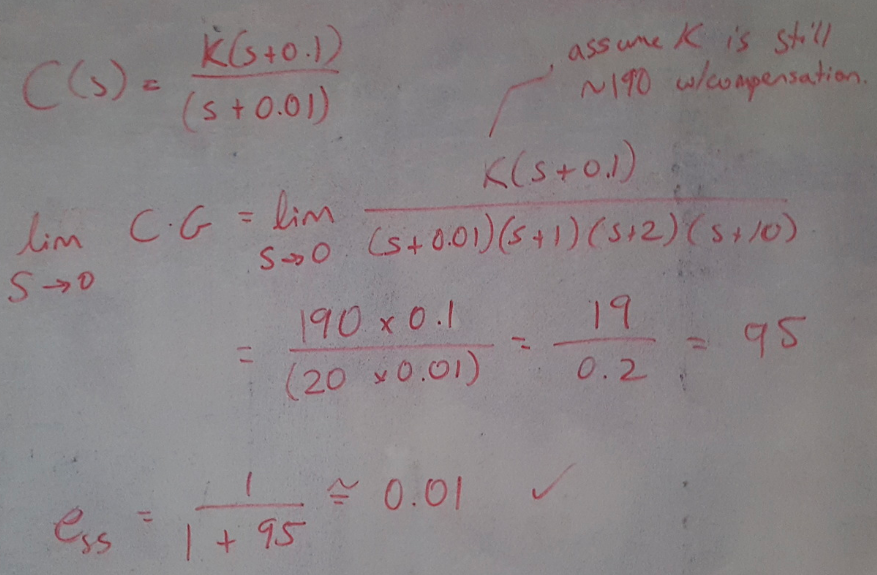 C(s) = K(s+0.1) / (s+0.01)
assume K is still
~190 w/compensation.
lim s→0 C·G = lim s→0 K(s+0.1) / (s+0.01)(s+1)(s+2)(s+10)
= 190 x 0.1 / (20 x 0.01) = 19 / 0.2 = 95
ess = 1 / 1 + 95 ≅ 0.01 ✓